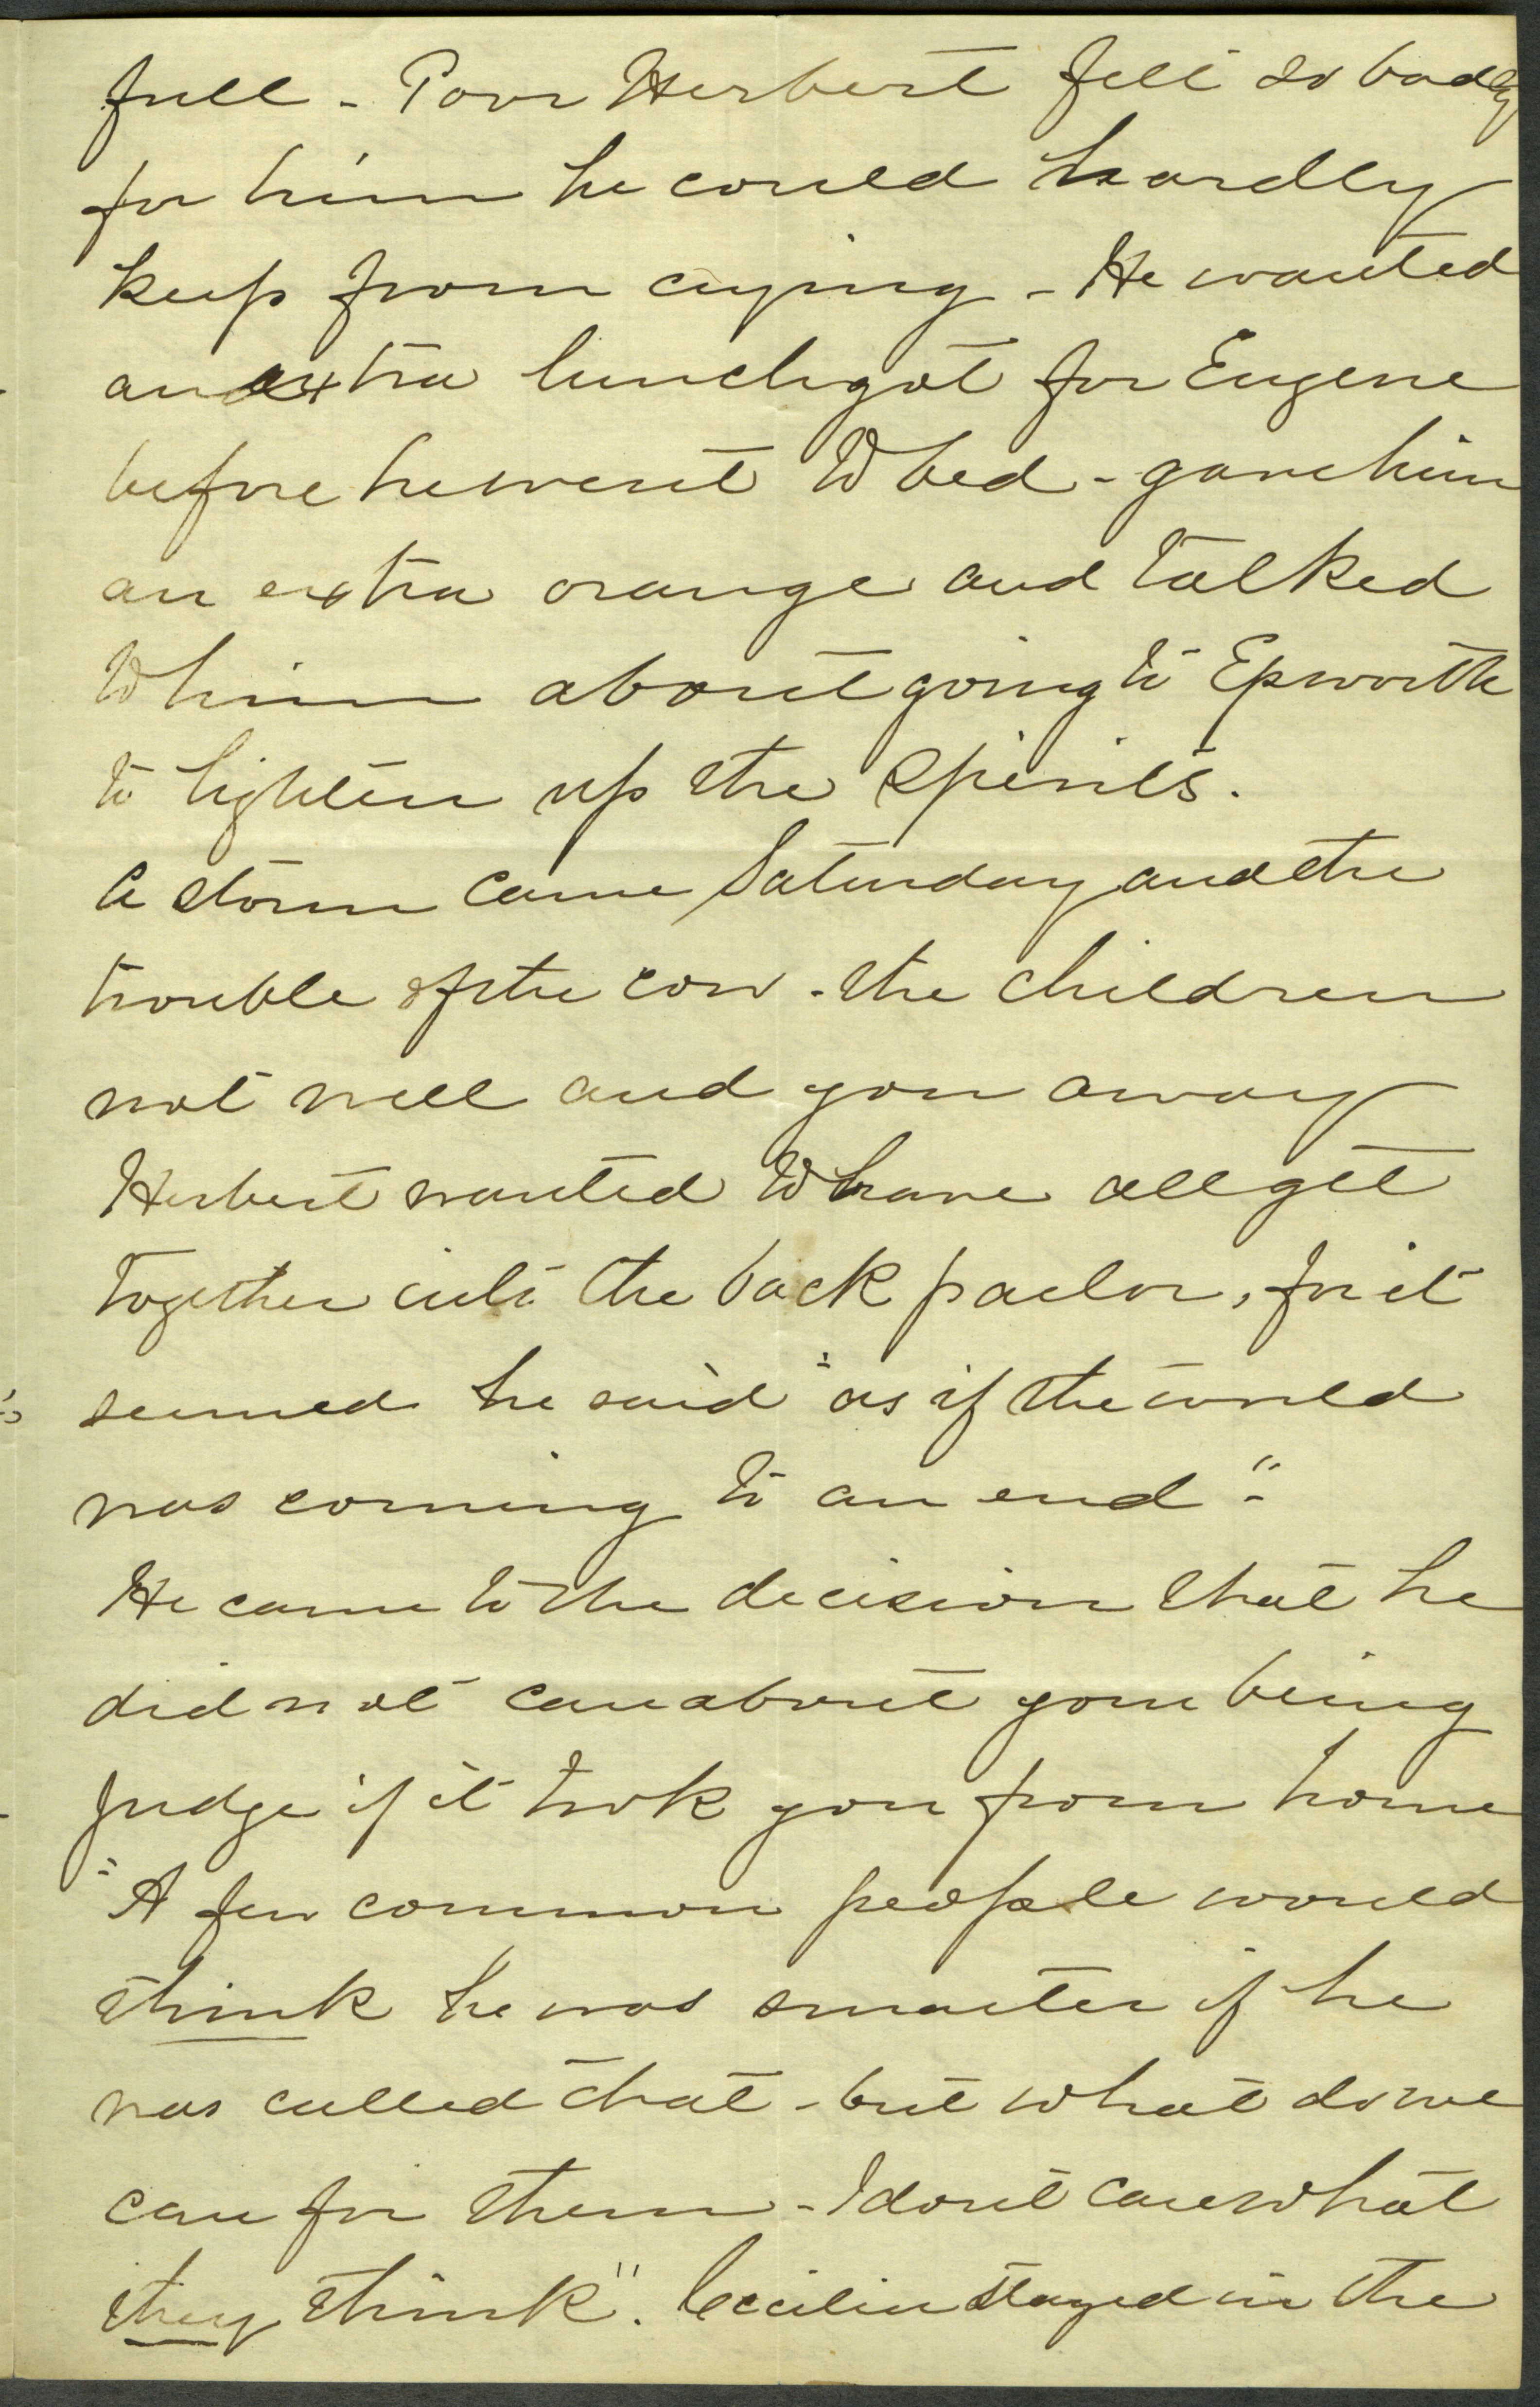 full - Poor Herbert felt so badly
for him he could hardly
keep from crying - He wanted
an extra lunch got for Eugene
before he went to bed - gave him
an extra orange and talked
to him about going to Epworth
to lighten up the spirits.
A storm came Saturday and the
trouble of the cow - the children
not well and you away
Herbert wanted to have all get
together into the back parlor, for it
seemed he said "as if the world
was coming to an end" -
He came to the decision that he
did not care about your being
Judge if it took you from home
"A few common people would
think he was smarter if he
was called that - but what do we
care for them - I don't care what
they think". Cecilia stayed in the